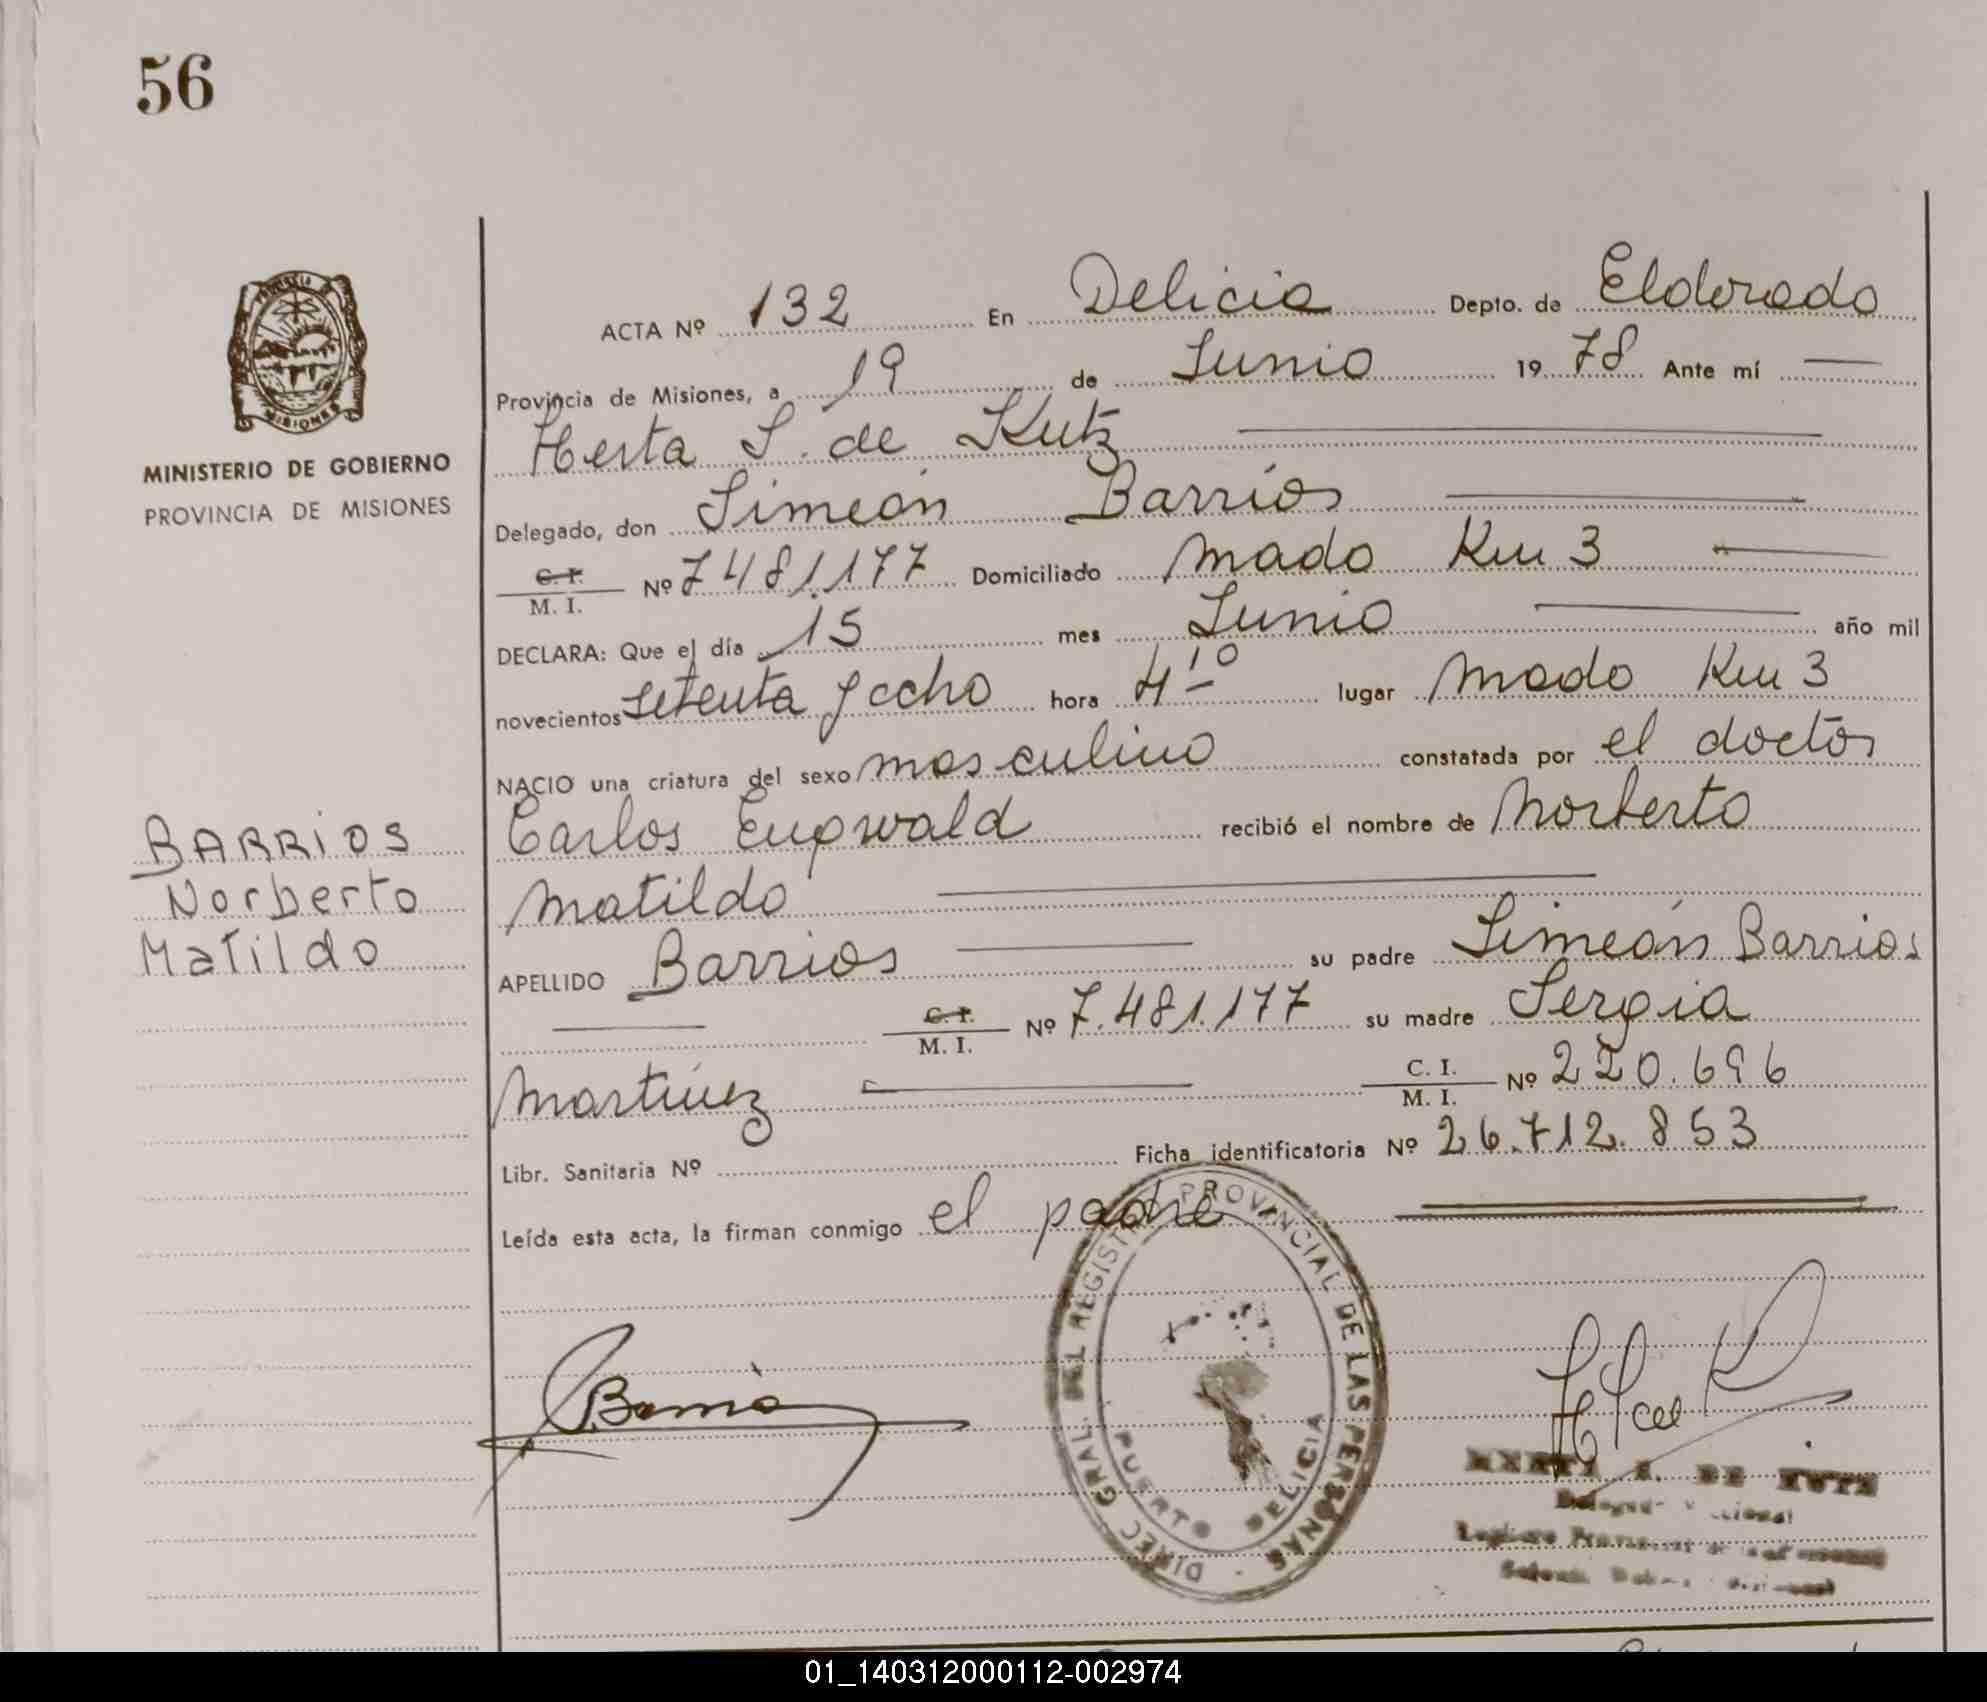 56
PROVINCIA DE
MISIONES
MINISTERIO DE GOBIERNO
PROVINCIA DE MISIONES
BARRIOS
Norberto
Matildo
ACTA Nº 132 En Delicia Depto. de Eldorado
Provincia de Misiones, a 19 de Junio 19 78 Ante mí
Herta S. de Kutz
Delegado, don Simeón Barrios
C. I. M. I. Nº 7481.177 Domiciliado Mado Km 3
DECLARA: Que el día 15 mes Junio año mil
novecientos setenta y ocho hora 4 10 lugar Mado Km 3
NACIO una criatura del sexo masculino constatada por el doctor
Carlos recibió el nombre de Norberto
Matildo
APELLIDO Barrios su padre Simeón Barrios
C. I. M. I. Nº 7.481.177 su madre Sergia
Martínez C. I. M. I. Nº 220.696
Libr. Sanitaria Nº Ficha identificatoria Nº 26.712.853
Leída esta acta, la firman conmigo el padre
DIREC. GRAL. DEL REGISTRO PROVINCIAL DE LAS PERSONAS
PUERTO DELICIA
S. DE KUTZ
01_140312000112-002974